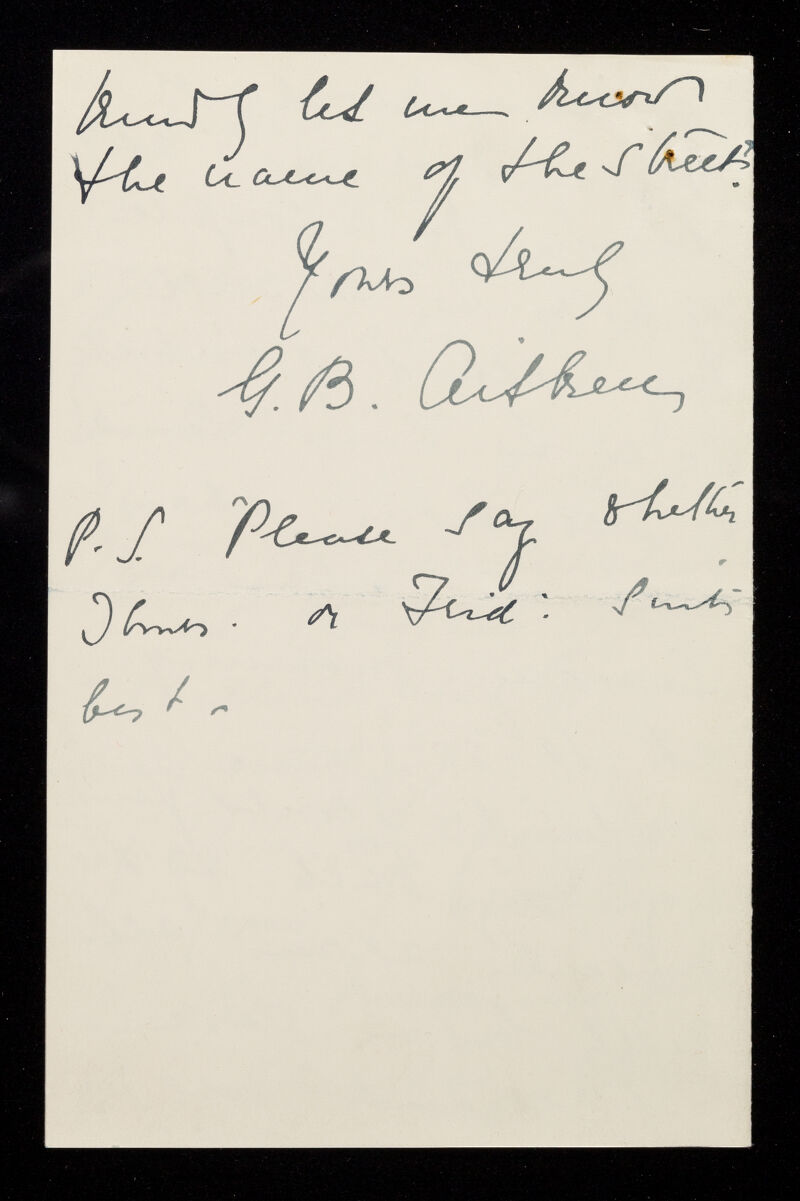 kindly let me know
the name of the street?
Yours truly
G. B. Aitken
P.S. Please say whether
Thurs. or Frid: suits
best.